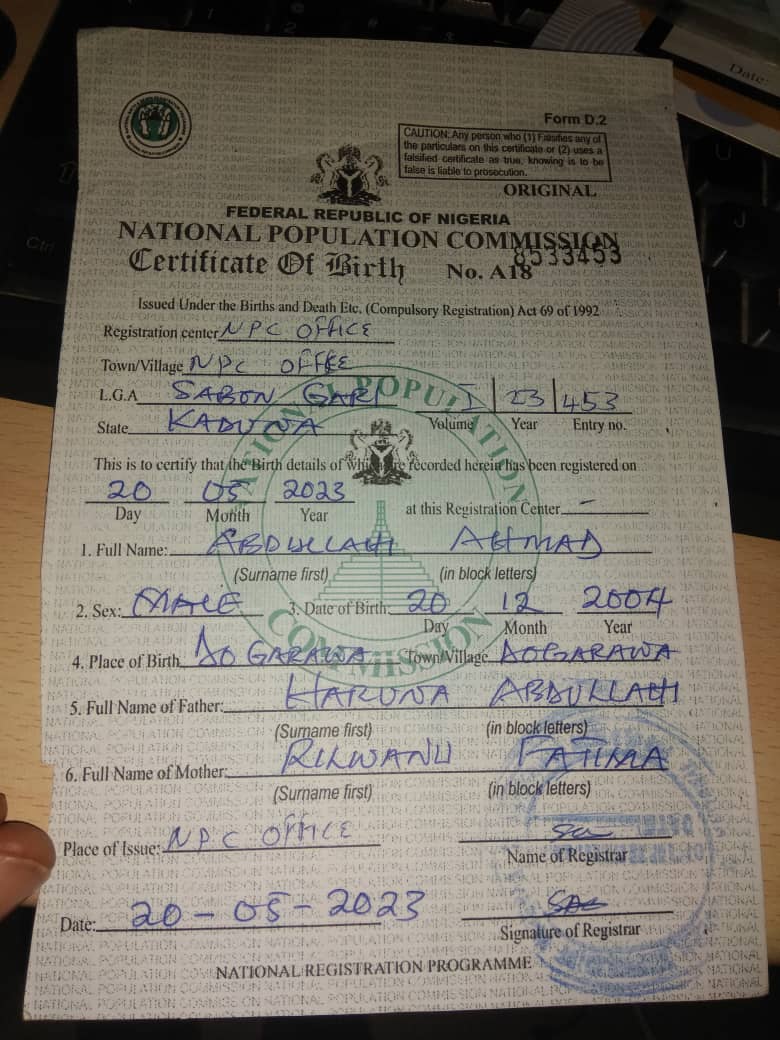 Date:
Form D.2
CAUTION: Any person who (1) Falsifies any of
the particulars on this certificate or (2) uses a
falsified certificate as true, knowing is to be
false is liable to prosecution.
ORIGINAL
FEDERAL REPUBLIC OF NIGERIA
NATIONAL POPULATION COMMISSION
Certificate Of Birth No. A18 8533453
Issued Under the Births and Death Etc. (Compulsory Registration) Act 69 of 1992
Registration center NPC OFFICE
Town/Village NPC OFFCE
L.G.A SABON GARI I 23 453
State KADUNA Volume Year Entry no.
This is to certify that the Birth details of which are recorded herein has been registered on
20 05 2023
Day Month Year at this Registration Center -
1. Full Name: ABDULLAHI AHMAD
(Surname first) (in block letters)
2. Sex: MALE 3. Date of Birth: 20 12 2004
Day Month Year
4. Place of Birth DOGARAWA Town/Village DOGARAWA
5. Full Name of Father: HARUNA ABDULLAHI
(Surname first) (in block letters)
6. Full Name of Mother: RILWANU FATIMA
(Surname first) (in block letters)
Place of Issue: NPC OFFICE
Name of Registrar
Date: 20-05-2023
Signature of Registrar
NATIONAL REGISTRATION PROGRAMME
NATIONAL POPULATION COMMISSION